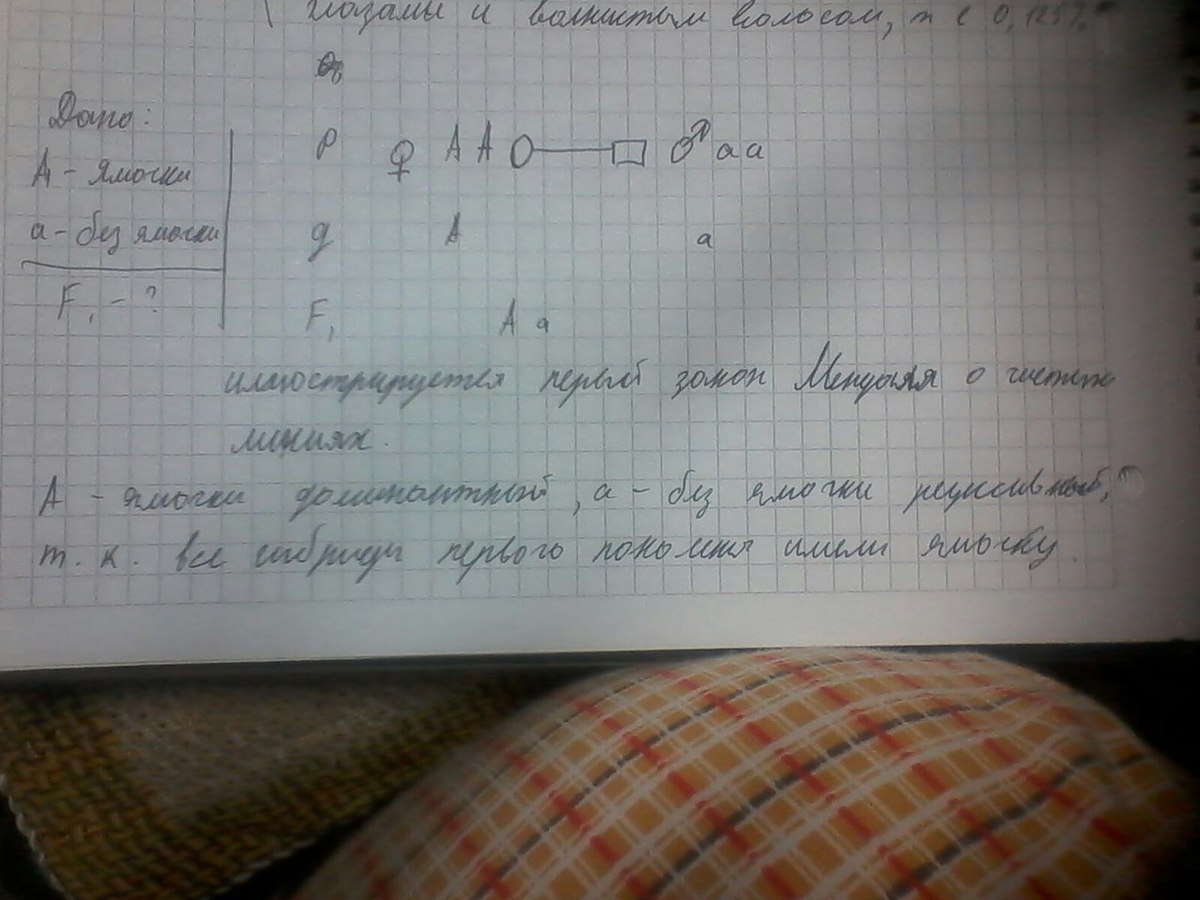 глазами и волнистым волосом, т е 0,125%
Дано:
А - ямочки
а - без ямочки
F₁ - ?
Р ♀ АА ♂ аа
g А а
F₁ А а
иллюстрируется первый закон Менделя о чистых
линиях.
А - ямочки доминантный, а - без ямочки рецисивный,
т. к. все гибриды первого поколения имели ямочку.